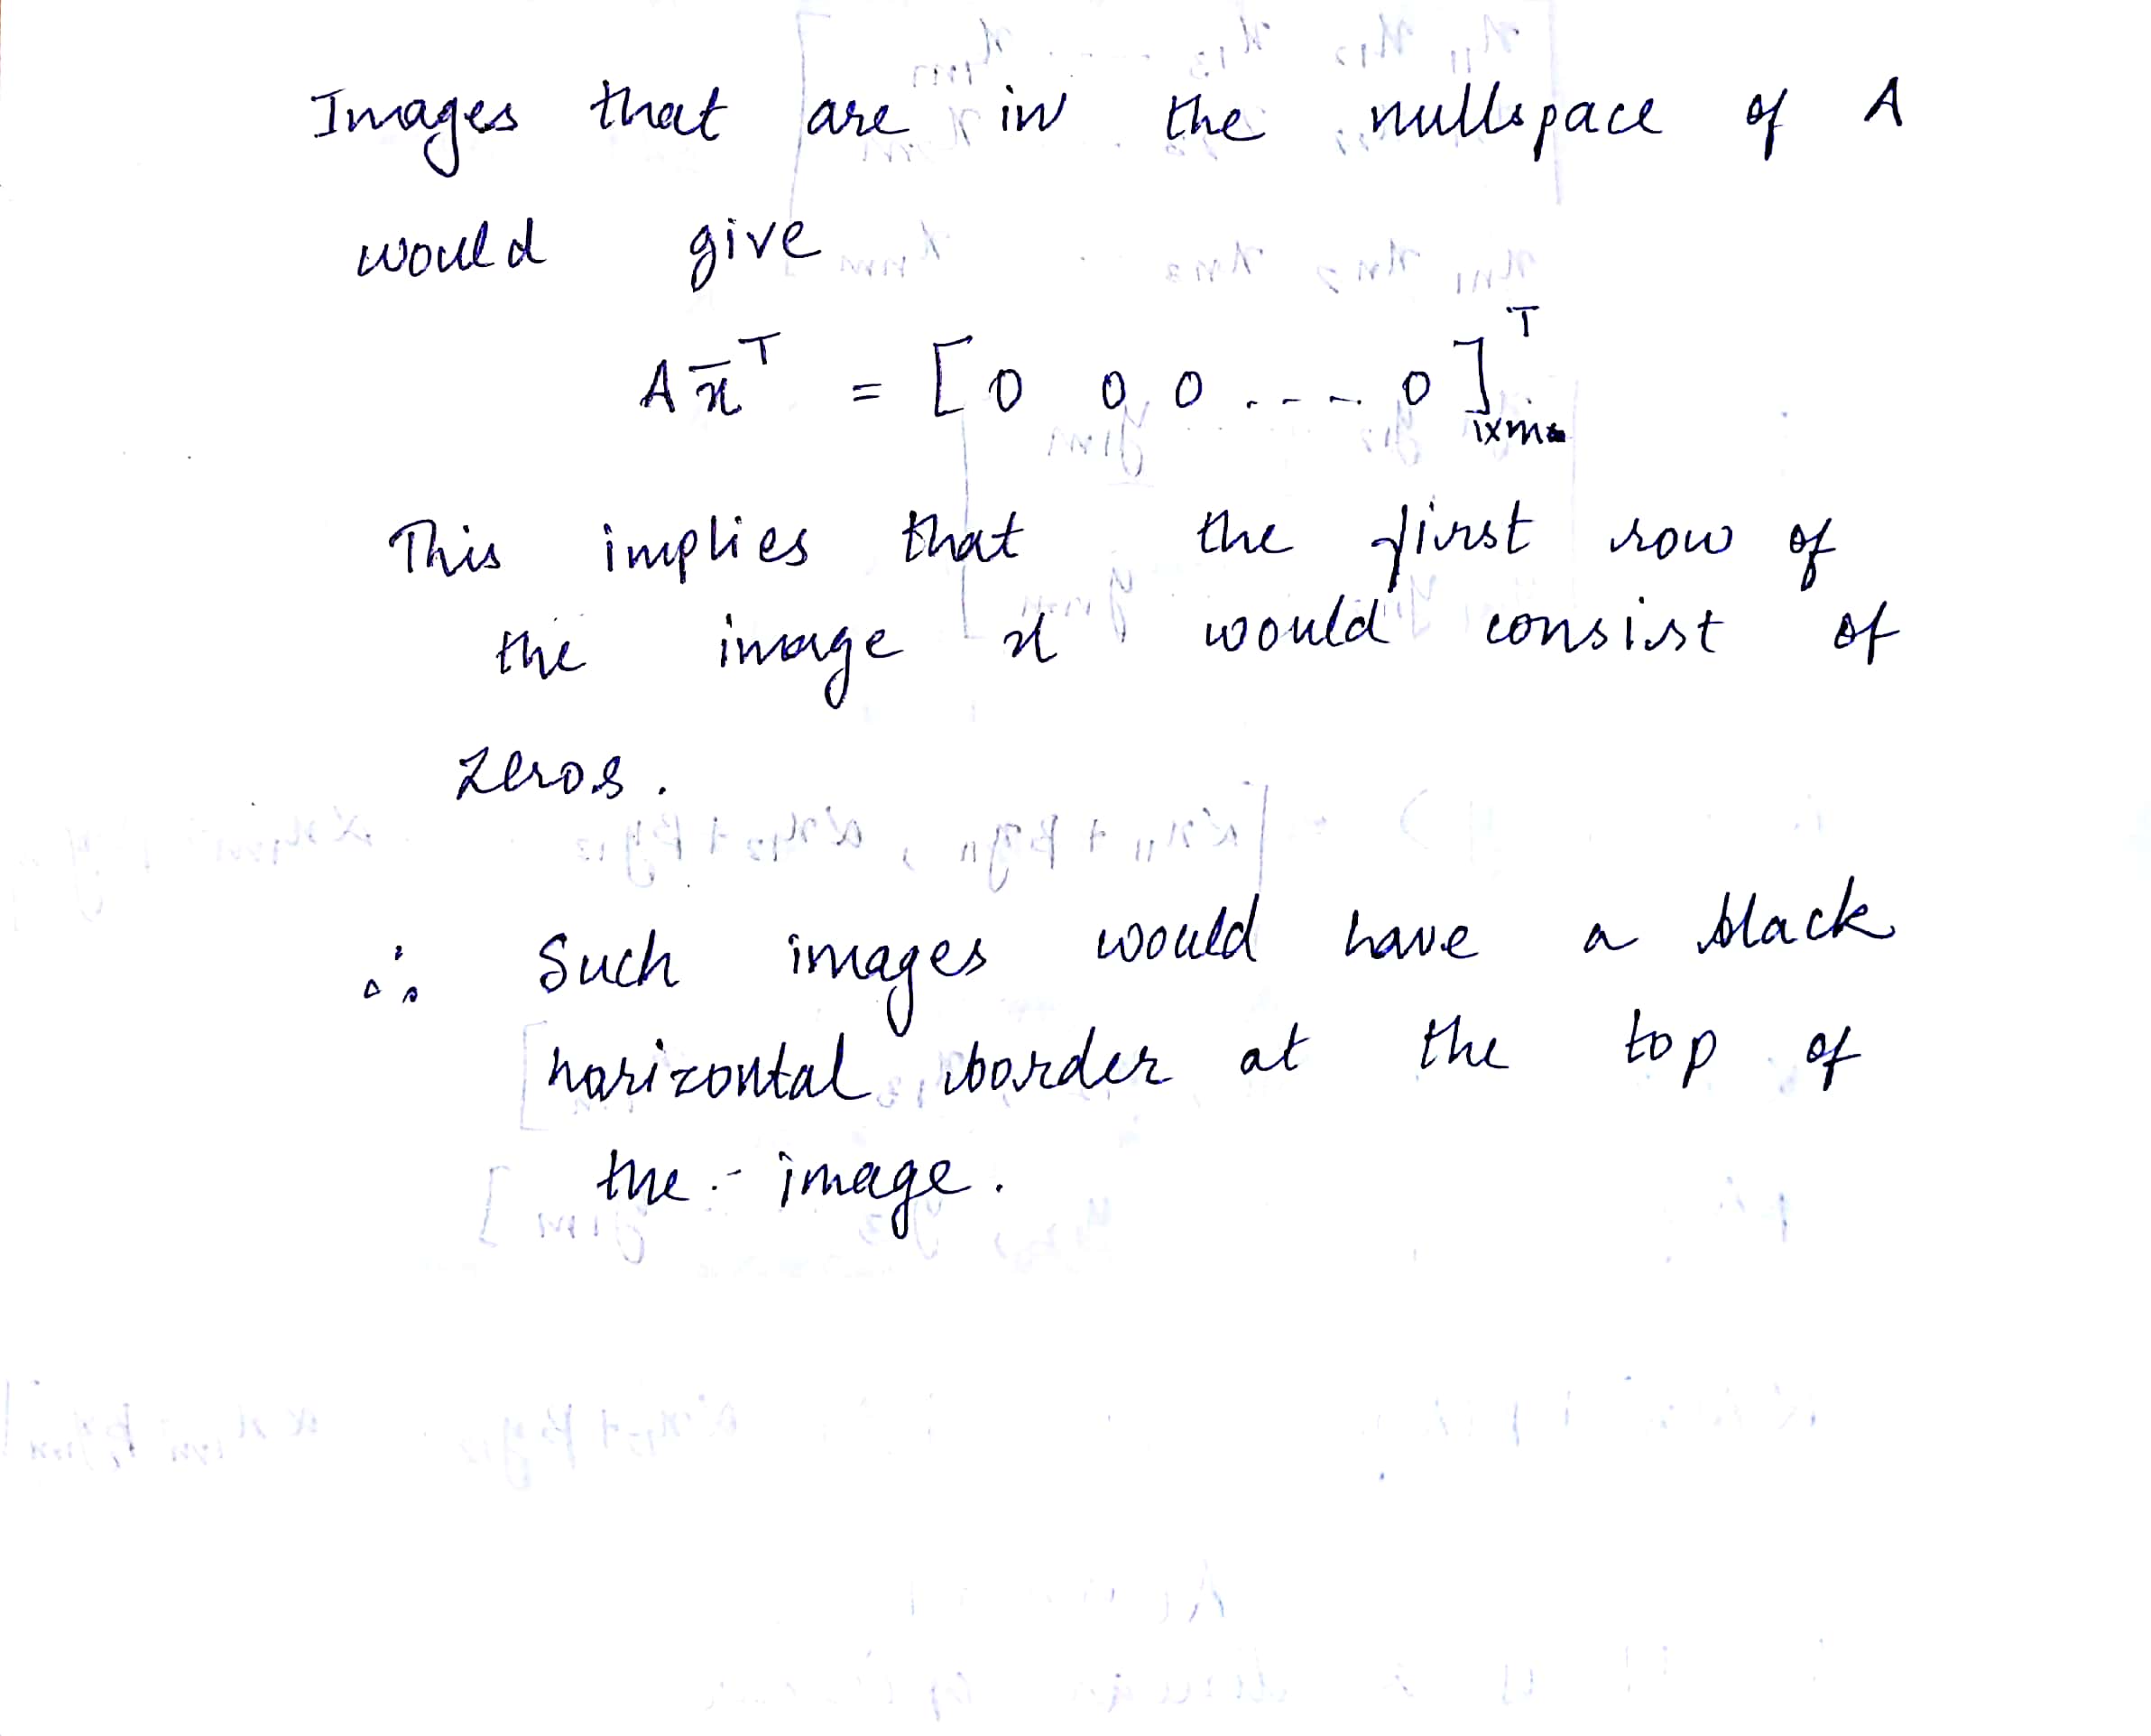 Images that are in the nullspace of A
would give
A x̄ᵀ = [0 0 0 .... 0]ᵀ 1xm
This implies that the first row of
the image x would consist of
zeros.
∴ Such images would have a black
horizontal border at the top of
the image.